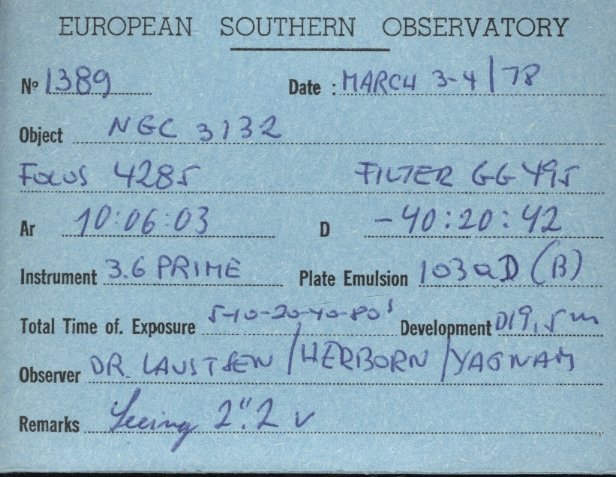 EUROPEAN SOUTHERN OBSERVATORY
Nº 1389 Date : MARCH 3-4/78
Object NGC 3132
FOCUS 4285 FILTER GG 495
Ar 10:06:03 D -40:20:42
Instrument 3.6 PRIME Plate Emulsion 103aD (B)
Total Time of. Exposure 5-10-20-40-80s Development D19, 5m
Observer DR. LAUSTSEN/HERBORN/YAGNAM
Remarks Seeing 2".2 v